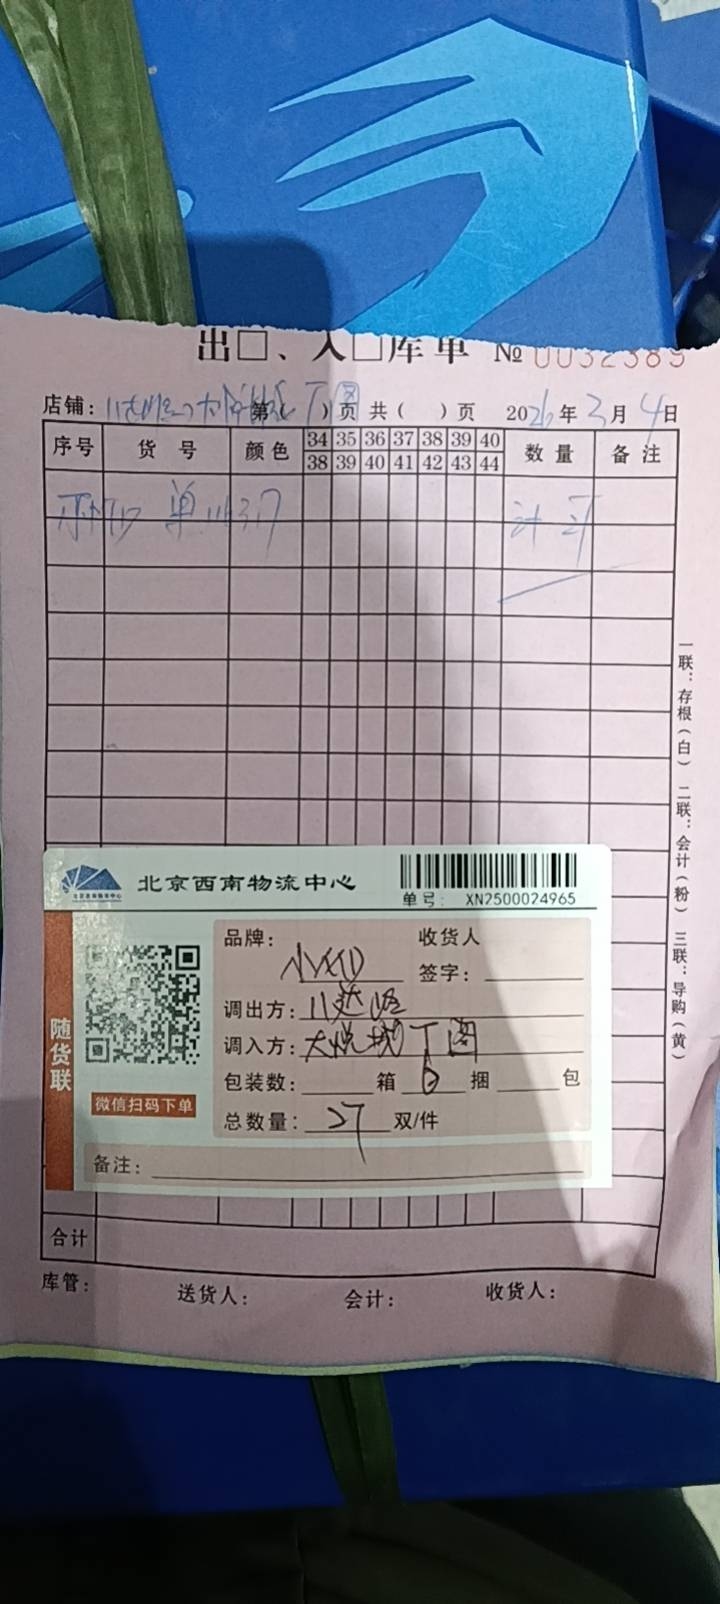 出□、入□库单 № 0032389
店铺: 第( )页 共( )页 2026年3月4日
序号 货号 颜色 34 35 36 37 38 39 40 数量 备注
38 39 40 41 42 43 44
一联:存根(白) 二联:会计(粉) 三联:导购(黄)
北京西南物流中心
单号: XN2500024965
随货联
微信扫码下单
品牌: 收货人
签字:
调出方: 八达岭
调入方: 大悦城丁图
包装数: 箱 6 捆 包
总数量: 27 双/件
备注:
合计
库管: 送货人: 会计: 收货人: